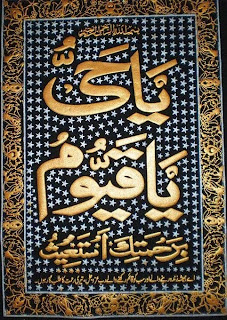 بسم الله الرحمن الرحيم
يَا حَيُّ
يَا قَيُّومُ
بِرَحْمَتِكَ أَسْتَغِيثُ